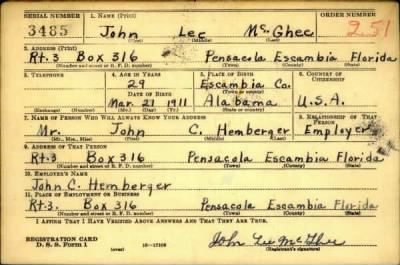 SERIAL NUMBER 1. NAME (Print) ORDER NUMBER
3485 John Lee McGhee 251
(First) (Middle) (Last)
2. ADDRESS (Print)
Rt. 3 Box 316 Pensacola Escambia Florida
(Number and street or R. F. D. number) (Town) (County) (State)
3. TELEPHONE 4. AGE IN YEARS 5. PLACE OF BIRTH 6. COUNTRY OF CITIZENSHIP
29 Escambia Co.
DATE OF BIRTH (Town or county)
Mar. 21 1911 Alabama U.S.A.
(Exchange) (Number) (Mo.) (Day) (Yr.) (State or country)
7. NAME OF PERSON WHO WILL ALWAYS KNOW YOUR ADDRESS 8. RELATIONSHIP OF THAT PERSON
Mr. John C. Hemberger Employer
(Mr., Mrs., Miss) (First) (Middle) (Last)
9. ADDRESS OF THAT PERSON
Rt. 3 Box 316 Pensacola Escambia Florida
(Number and street or R. F. D. number) (Town) (County) (State)
10. EMPLOYER'S NAME
John C. Hemberger
11. PLACE OF EMPLOYMENT OR BUSINESS
Rt. 3. Box 316 Pensacola Escambia Florida
(Number and street or R. F. D. number) (Town) (County) (State)
I AFFIRM THAT I HAVE VERIFIED ABOVE ANSWERS AND THAT THEY ARE TRUE.
REGISTRATION CARD
D. S. S. Form 1 (over) 16-17105 John Lee McGhee
(Registrant's signature)